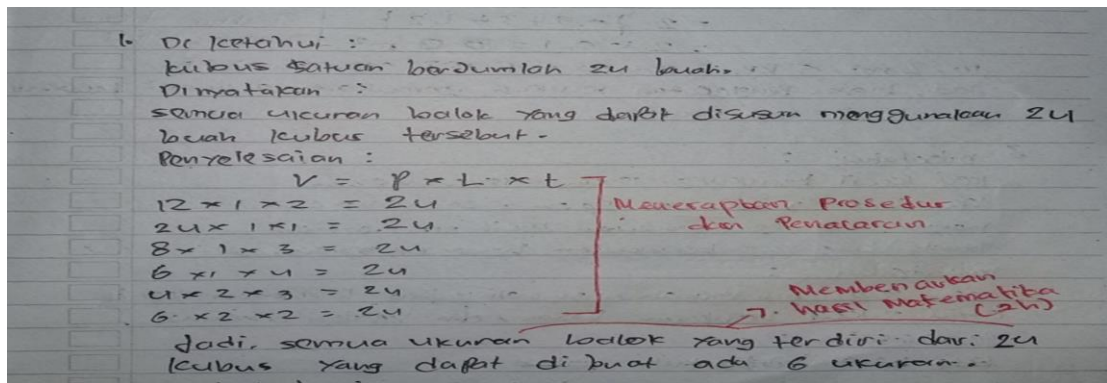 1. Di ketahui :
kubus satuan berjumlah 24 buah.
Dinyatakan :
semua ukuran balok yang dapat disusun menggunakan 24
buah kubus tersebut.
Penyelesaian :
V = P × L × t
12 × 1 × 2 = 24
Menerapkan Prosedur
24 × 1 × 1 = 24
dan Penalaran
8 × 1 × 3 = 24
6 × 1 × 4 = 24
Membenarkan
4 × 2 × 3 = 24
hasil Matematika
6 × 2 × 2 = 24
Jadi, semua ukuran balok yang terdiri dari 24
kubus yang dapat di buat ada 6 ukuran.